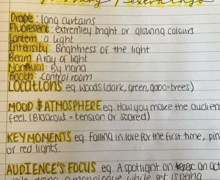 Drape: long curtains
Fluorescent: extremely bright or glaring colours
Lantern: a light
Intensity: Brightness of the light
Beam: A ray of light
Manual: By hand
Booth: control room
LOCATIONS eg. Woods (dark, green, gobo-trees)
MOOD & ATMOSPHERE eg. How you make the audience
feel. (Blackout - tension or scared)
KEY MOMENTS eg. Falling in love for the first time, pink
or red lights.
AUDIENCE'S FOCUS eg. A spotlight on an